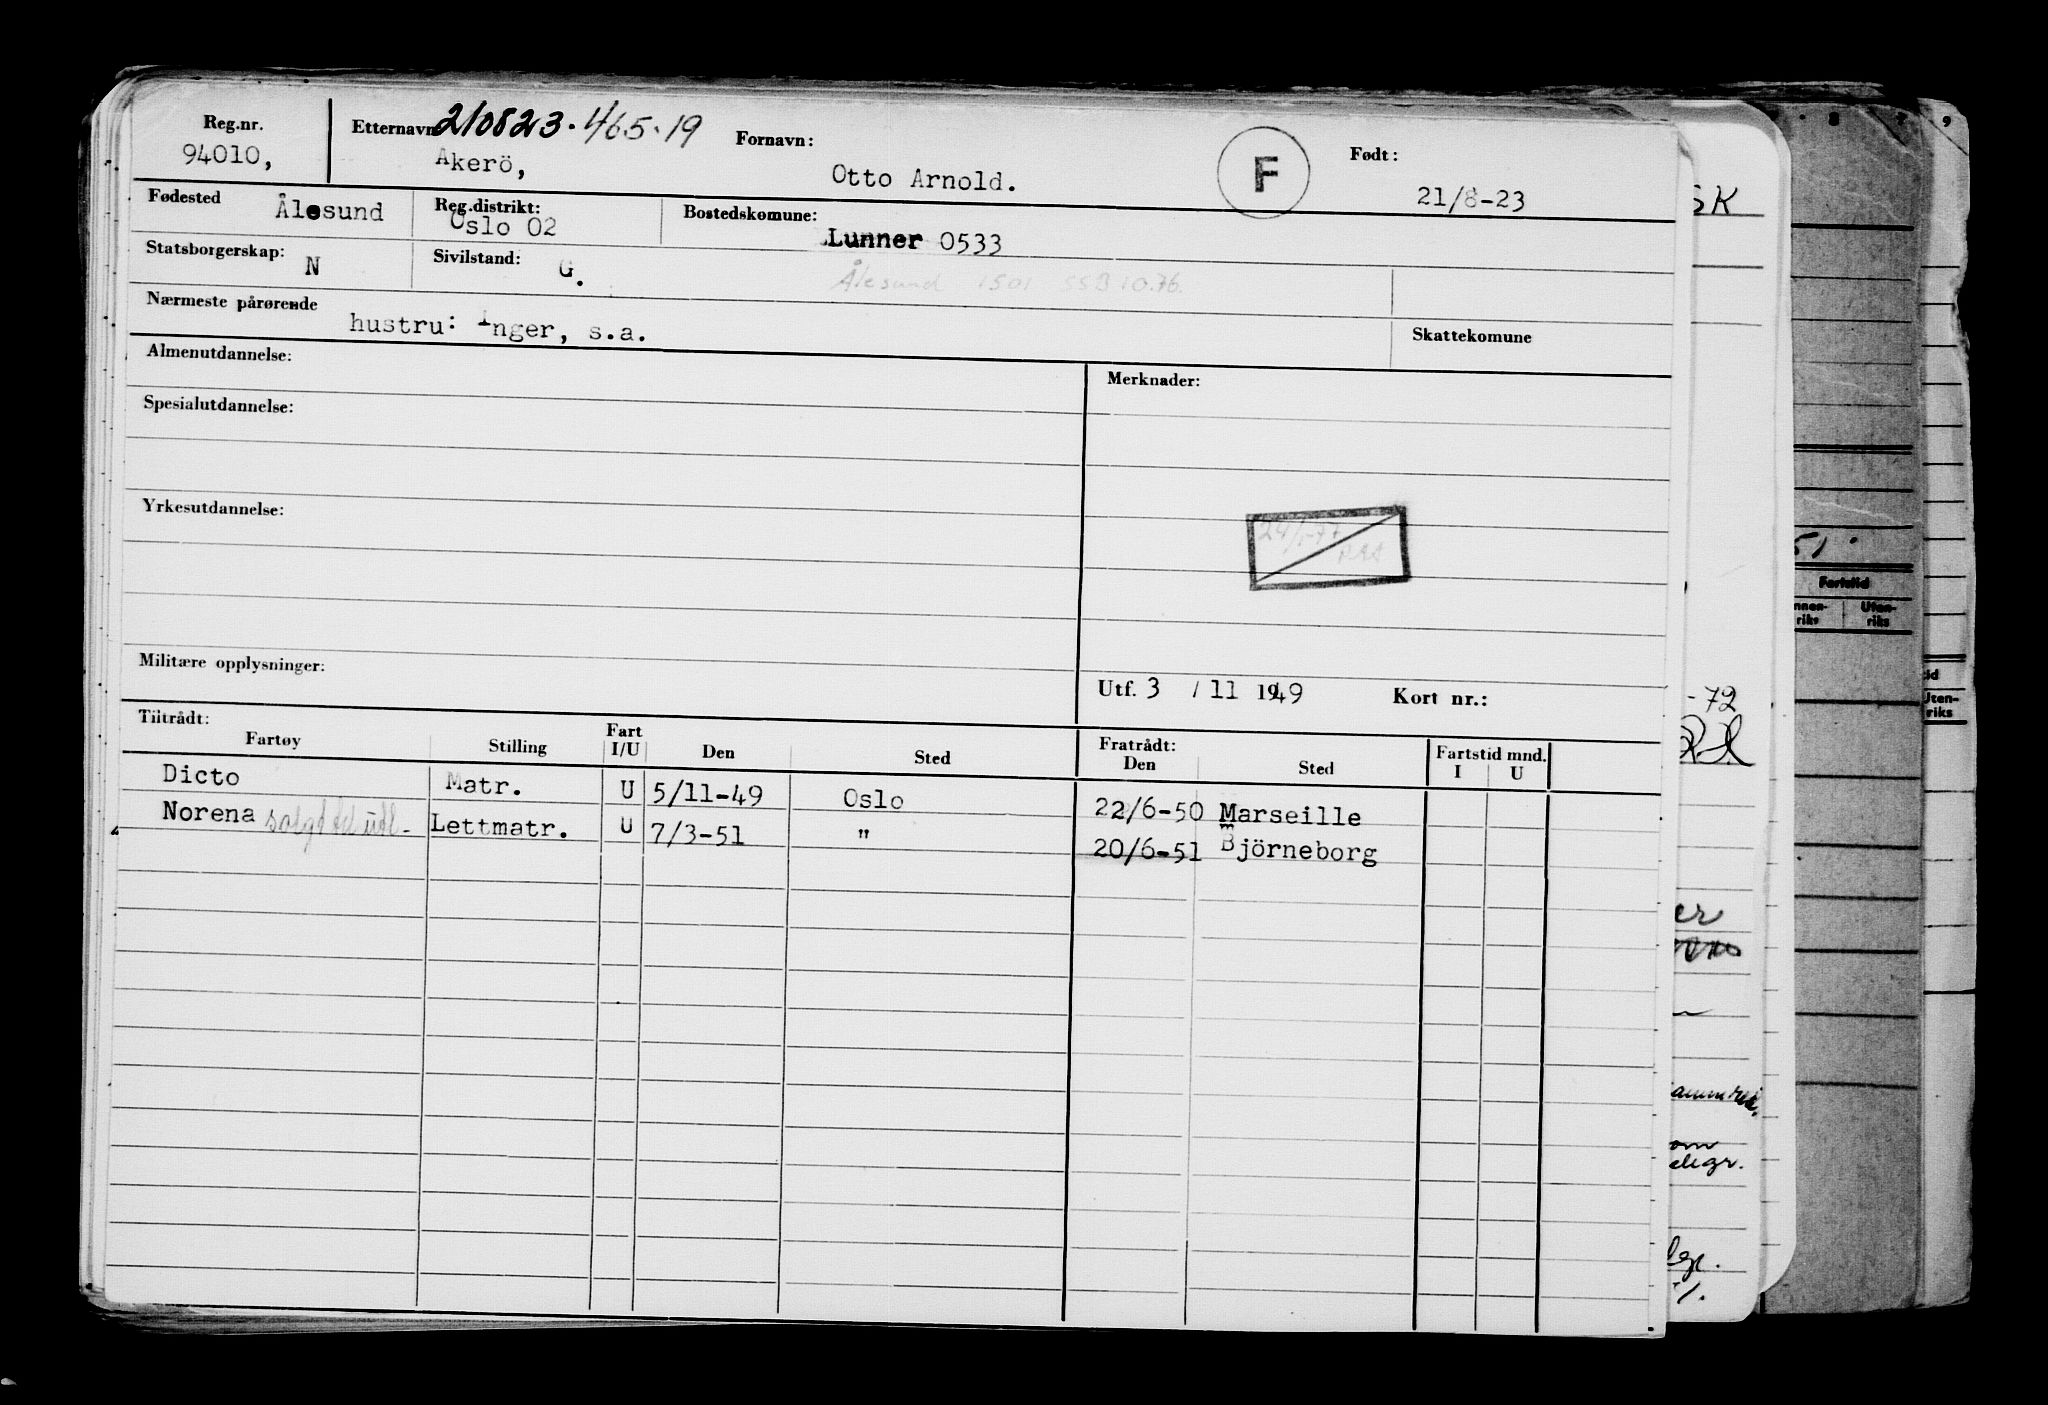 Reg.nr. Etternavn 210823.465.19 Fornavn: F Født:
94010, Akerö, Otto Arnold. 21/8-23
Fødested Ålesund Reg.distrikt: Oslo 02 Bostedskomune: Lunner 0533
Statsborgerskap: N Sivilstand: G. Ålesund 1501 SSB 10.76.
Nærmeste pårørende hustru: Inger, s.a. Skattekomune
Almenutdannelse: Merknader:
Spesialutdannelse:
Yrkesutdannelse:
Militære opplysninger:
Utf. 3 / 11 1949 Kort nr.:
Tiltrådt: Fratrådt:
Fartøy Stilling Fart I/U Den Sted Den Sted Fartstid mnd. I U
Dicto Matr. U 5/11-49 Oslo 22/6-50 Marseille
Norena Lettmatr. U 7/3-51 " 20/6-51 Björneborg
SK
51.
Fartstid
riks Uten-riks
Uten-riks
-72